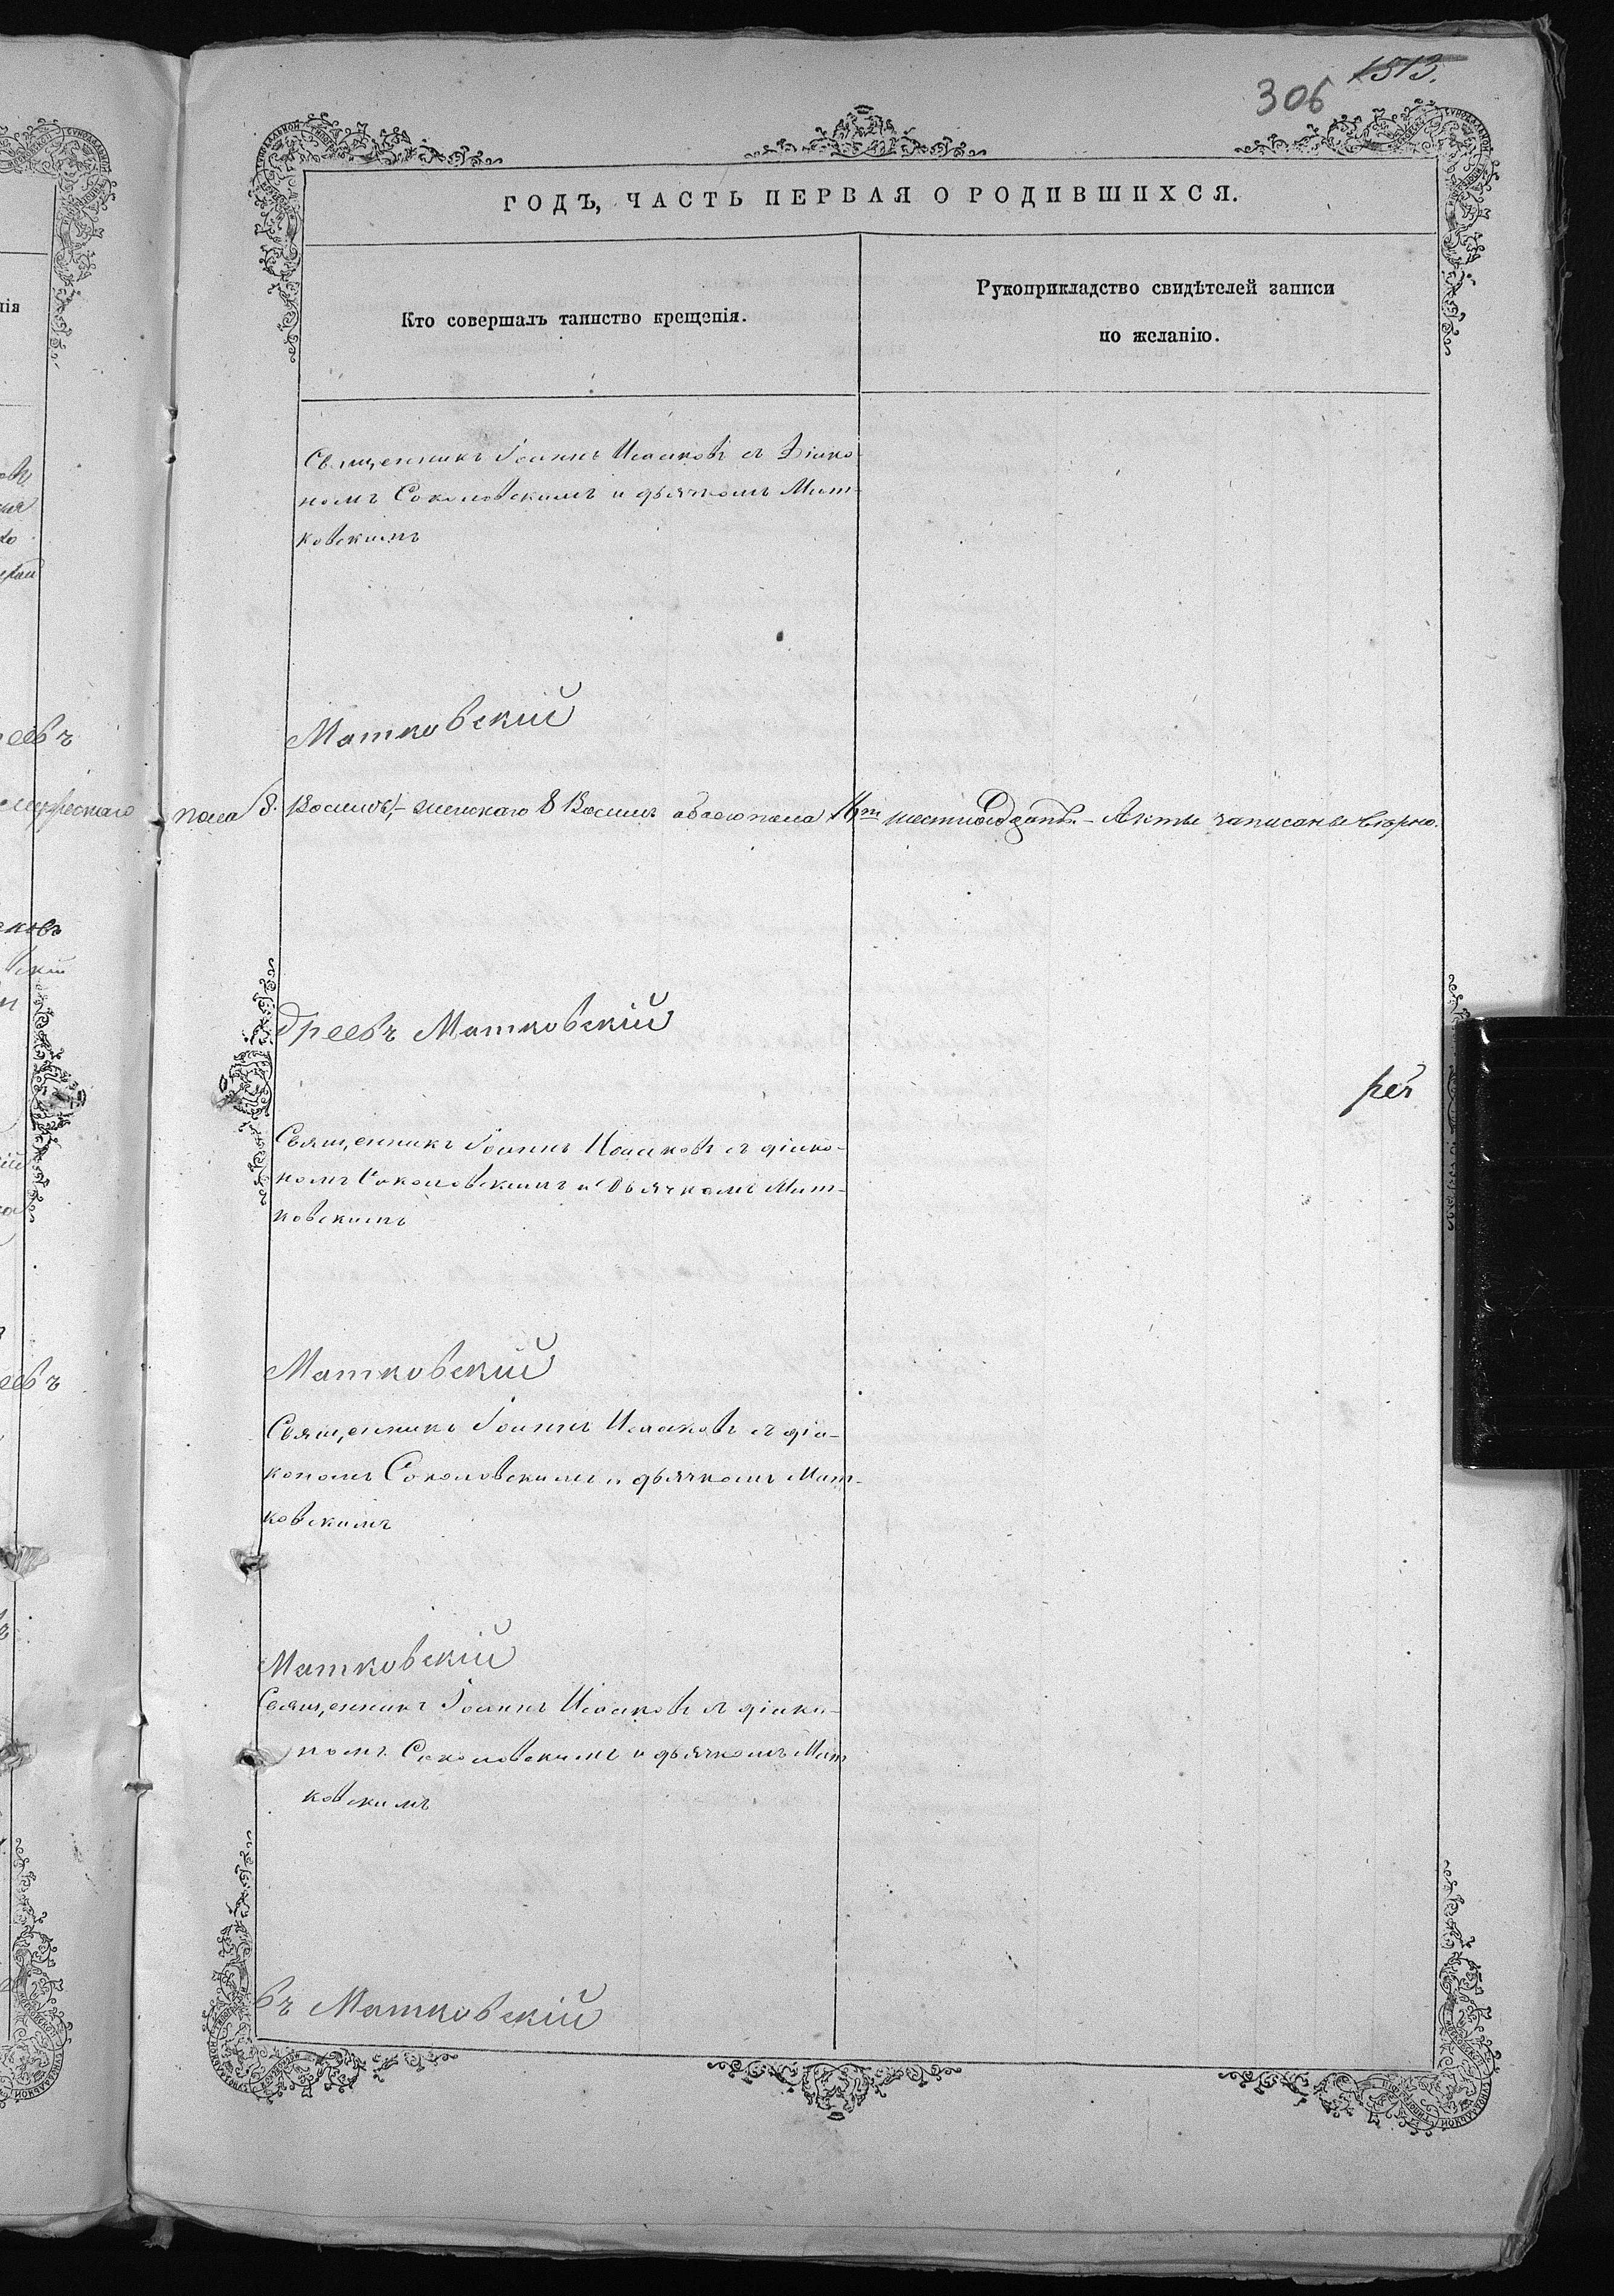 1513.
306
ГОДЪ, ЧАСТЬ ПЕРВАЯ О РОДИВШИХСЯ.
Кто совершалъ таинство крещенія.
Рукоприкладство свидѣтелей записи
по желанію.
Священникъ Іоаннъ Исаковъ съ Діако
номъ Соколовскимъ и дьячкомъ Мат-
ковскимъ
Матковскій
пола 8. Восемь,- женскаго 8 Восемь обоего пола 16ть шестнадцать.- Акты записаны вѣрно.
дреевъ Матковскій
Священникъ Іоаннъ Исаковъ съ діако-
номъ Соколовскимъ и дьячкомъ Мат-
ковскимъ
Матковскій
Священникъ Іоаннъ Исаковъ съ діа-
кономъ Соколовскимъ и дьячкомъ Мат-
ковскимъ
Матковскій
Священникъ Іоаннъ Исаковъ съ діако-
номъ Соколовскимъ и дьячкомъ Мат
ковскимъ
въ Матковскій